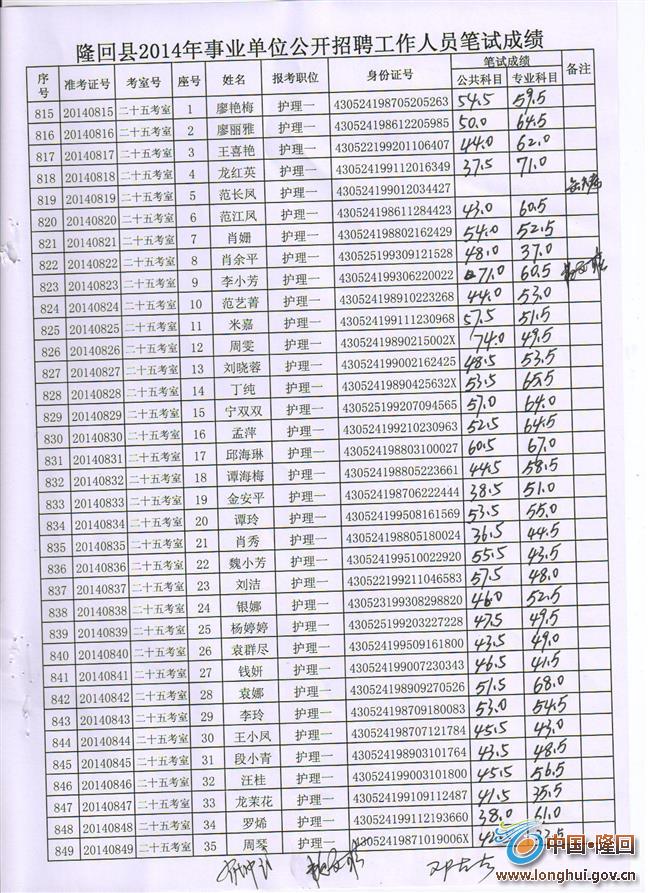 隆回县2014年事业单位公开招聘工作人员笔试成绩
序号 准考证号 考室号 座号 姓名 报考职位 身份证号 笔试成绩 备注
公共科目 专业科目
815 20140815 二十五考室 1 廖艳梅 护理一 430524198705205263 54.5 59.5
816 20140816 二十五考室 2 廖丽雅 护理一 430524198612205985 50.0 64.5
817 20140817 二十五考室 3 王喜艳 护理一 430522199201106407 44.0 62.0
818 20140818 二十五考室 4 龙红英 护理一 430524199112016349 37.5 71.0
819 20140819 二十五考室 5 范长凤 护理一 430524199012034427
820 20140820 二十五考室 6 范江凤 护理一 430524198611284423 43.0 60.5
821 20140821 二十五考室 7 肖姗 护理一 430524198802162429 54.0 52.5
822 20140822 二十五考室 8 肖余平 护理一 430525199309121528 48.0 37.0
823 20140823 二十五考室 9 李小芳 护理一 430524199306220022 71.0 60.5
824 20140824 二十五考室 10 范艺菁 护理一 430524198910223268 44.0 53.0
825 20140825 二十五考室 11 米嘉 护理一 430524199111230968 57.5 51.5
826 20140826 二十五考室 12 周雯 护理一 43052419890215002X 74.0 49.5
827 20140827 二十五考室 13 刘晓蓉 护理一 430524199002162425 48.5 53.5
828 20140828 二十五考室 14 丁纯 护理一 43052419890425632X 53.5 65.5
829 20140829 二十五考室 15 宁双双 护理一 430525199207094565 57.0 64.0
830 20140830 二十五考室 16 孟萍 护理一 430524199210230963 52.5 64.5
831 20140831 二十五考室 17 邱海琳 护理一 430524198803100027 60.5 67.0
832 20140832 二十五考室 18 谭海梅 护理一 430524198805223661 44.5 58.5
833 20140833 二十五考室 19 金安平 护理一 430524198706222444 38.5 51.0
834 20140834 二十五考室 20 谭玲 护理一 430524199508161569 53.5 55.0
835 20140835 二十五考室 21 肖秀 护理一 430524198805180024 36.5 44.5
836 20140836 二十五考室 22 魏小芳 护理一 430524199510022920 55.5 43.5
837 20140837 二十五考室 23 刘洁 护理一 430522199211046583 57.5 48.0
838 20140838 二十五考室 24 银娜 护理一 430523199308298820 46.0 52.5
839 20140839 二十五考室 25 杨婷婷 护理一 430525199203227228 47.5 49.5
840 20140840 二十五考室 26 袁群尽 护理一 430524199509161800 43.5 49.0
841 20140841 二十五考室 27 钱妍 护理一 430524199007230343 46.5 41.5
842 20140842 二十五考室 28 袁娜 护理一 430524198909270526 51.5 68.0
843 20140843 二十五考室 29 李玲 护理一 430524198709180083 53.0 54.5
844 20140844 二十五考室 30 王小凤 护理一 430524198707121784 45.5 43.0
845 20140845 二十五考室 31 段小青 护理一 430524198903101764 43.5 48.5
846 20140846 二十五考室 32 汪桂 护理一 430524199003101800 45.5 56.5
847 20140847 二十五考室 33 龙茉花 护理一 430524199109112487 41.5 35.5
848 20140848 二十五考室 34 罗烯 护理一 430524199112193660 38.0 61.0
849 20140849 二十五考室 35 周琴 护理一 43052419871019006X
中国·隆回
www.longhui.gov.cn